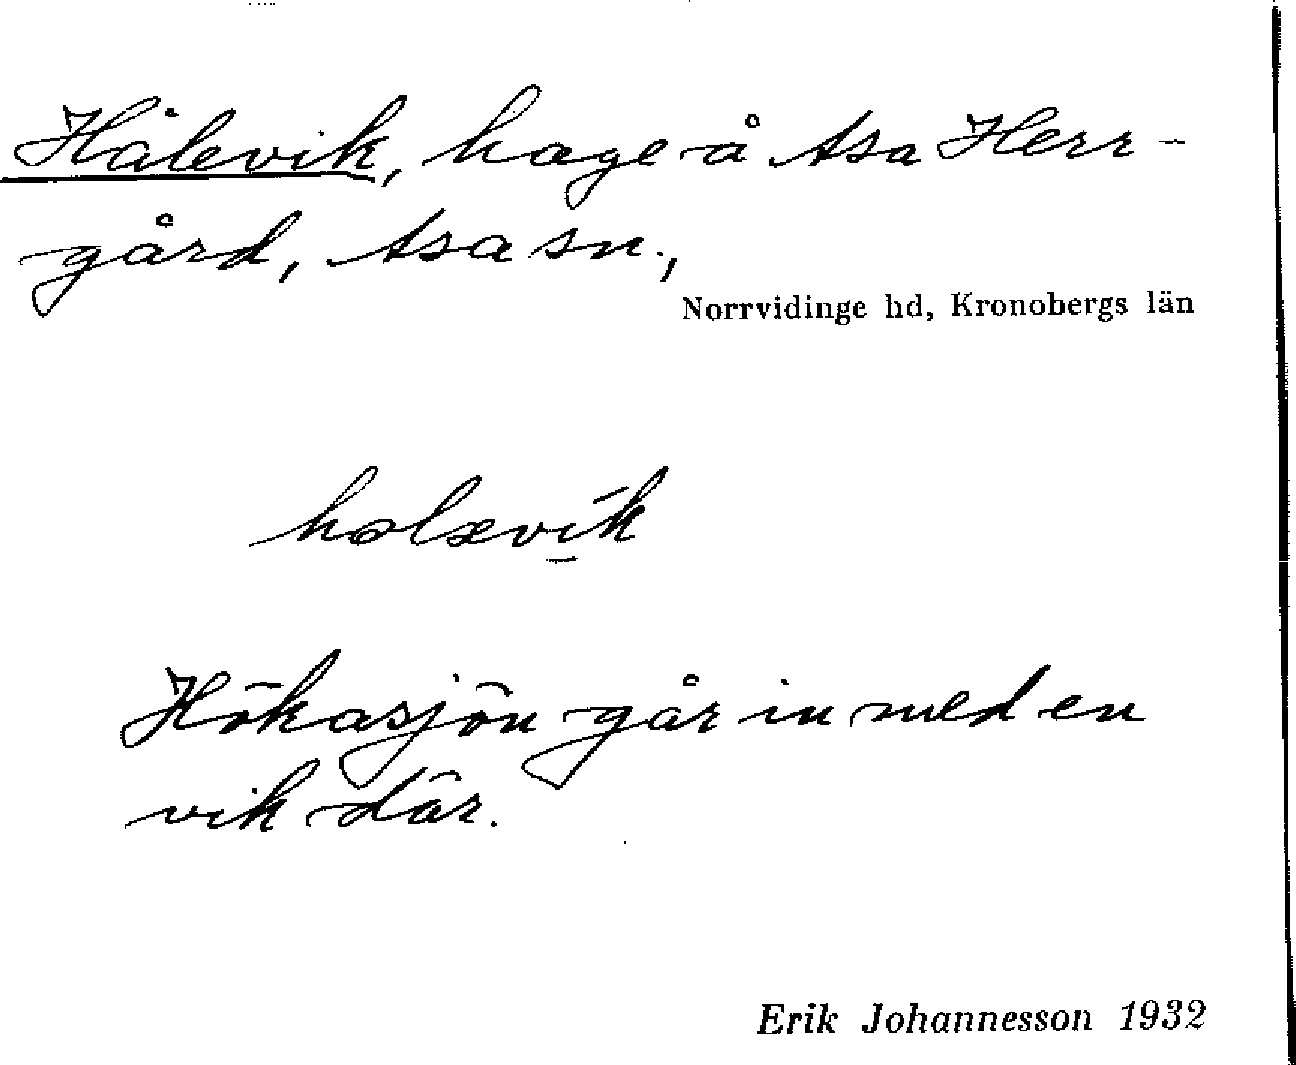 Hålevik, hage å Asa Herr-
gård, Asa sn.,
Norrvidinge hd, Kronobergs län
holævik
Hökasjön går in med en
vik där.
Erik Johannesson 1932